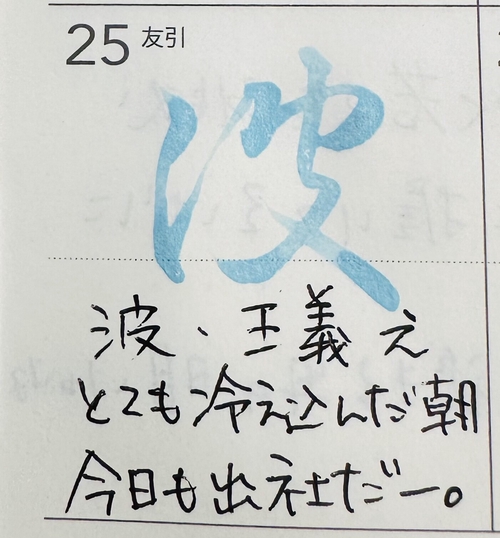 25 友引
波
波、王羲之
とても冷え込んだ朝
今日も出社だー。